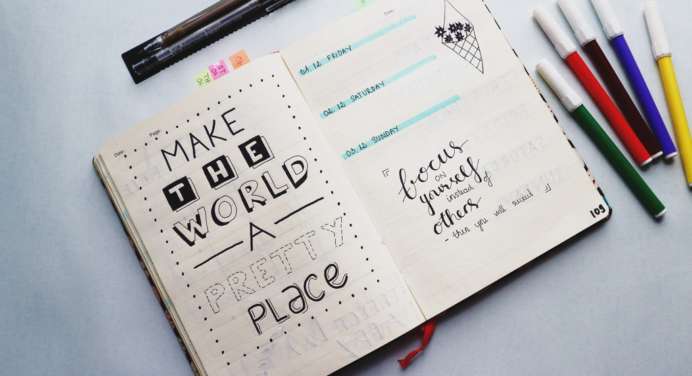 Date:
Page:
MAKE
THE
WORLD
A
PRETTY
PLACE
Date:
01.12 FRIDAY
02.12 SATURDAY
03.12 SUNDAY
focus
on
yourself
instead of
others
- then you will succeed
109